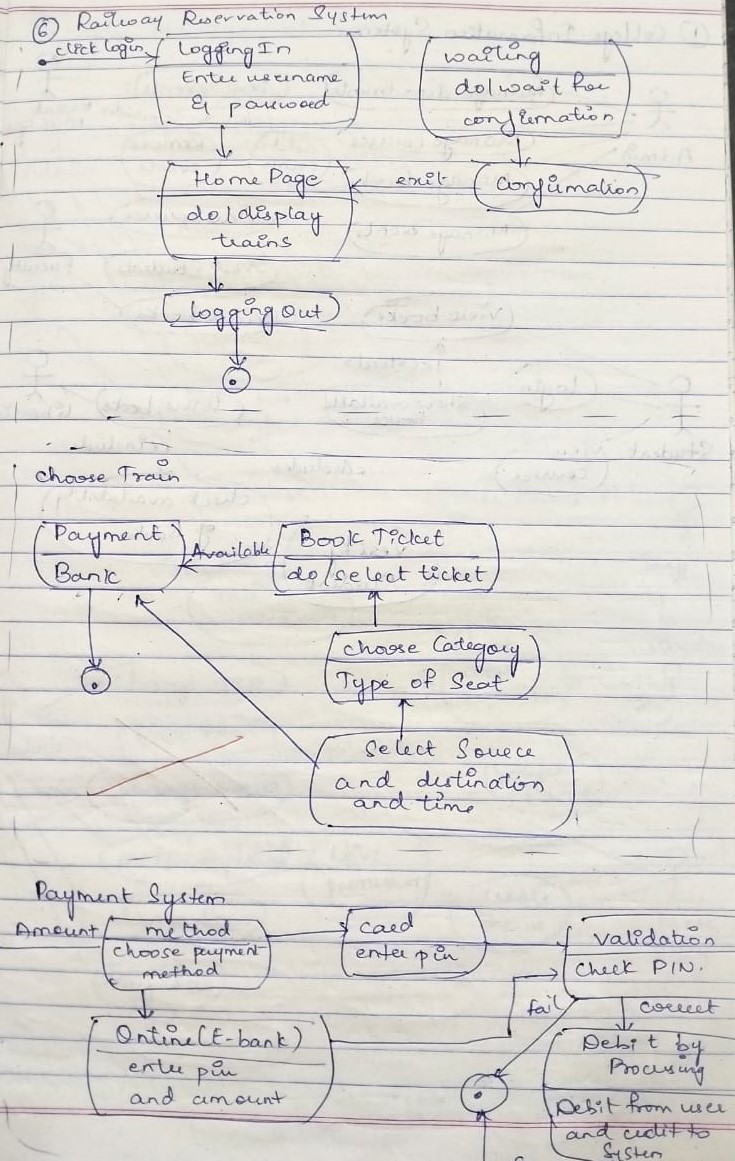 ⑥ Railway Reservation System
click login
Logging In
Enter username
& password
waiting
do/wait for
confirmation
Home Page
do/display
trains
exit
Confirmation
Logging Out
Choose Train
Payment
Bank
Available
Book Ticket
do/select ticket
Choose Category
Type of Seat
Select Source
and destination
and time
Payment System
Amount
method
choose payment
method
card
enter pin
Validation
Check PIN.
fail
correct
Online (E-bank)
enter pin
and amount
Debit by
Processing
Debit from user
and credit to
System